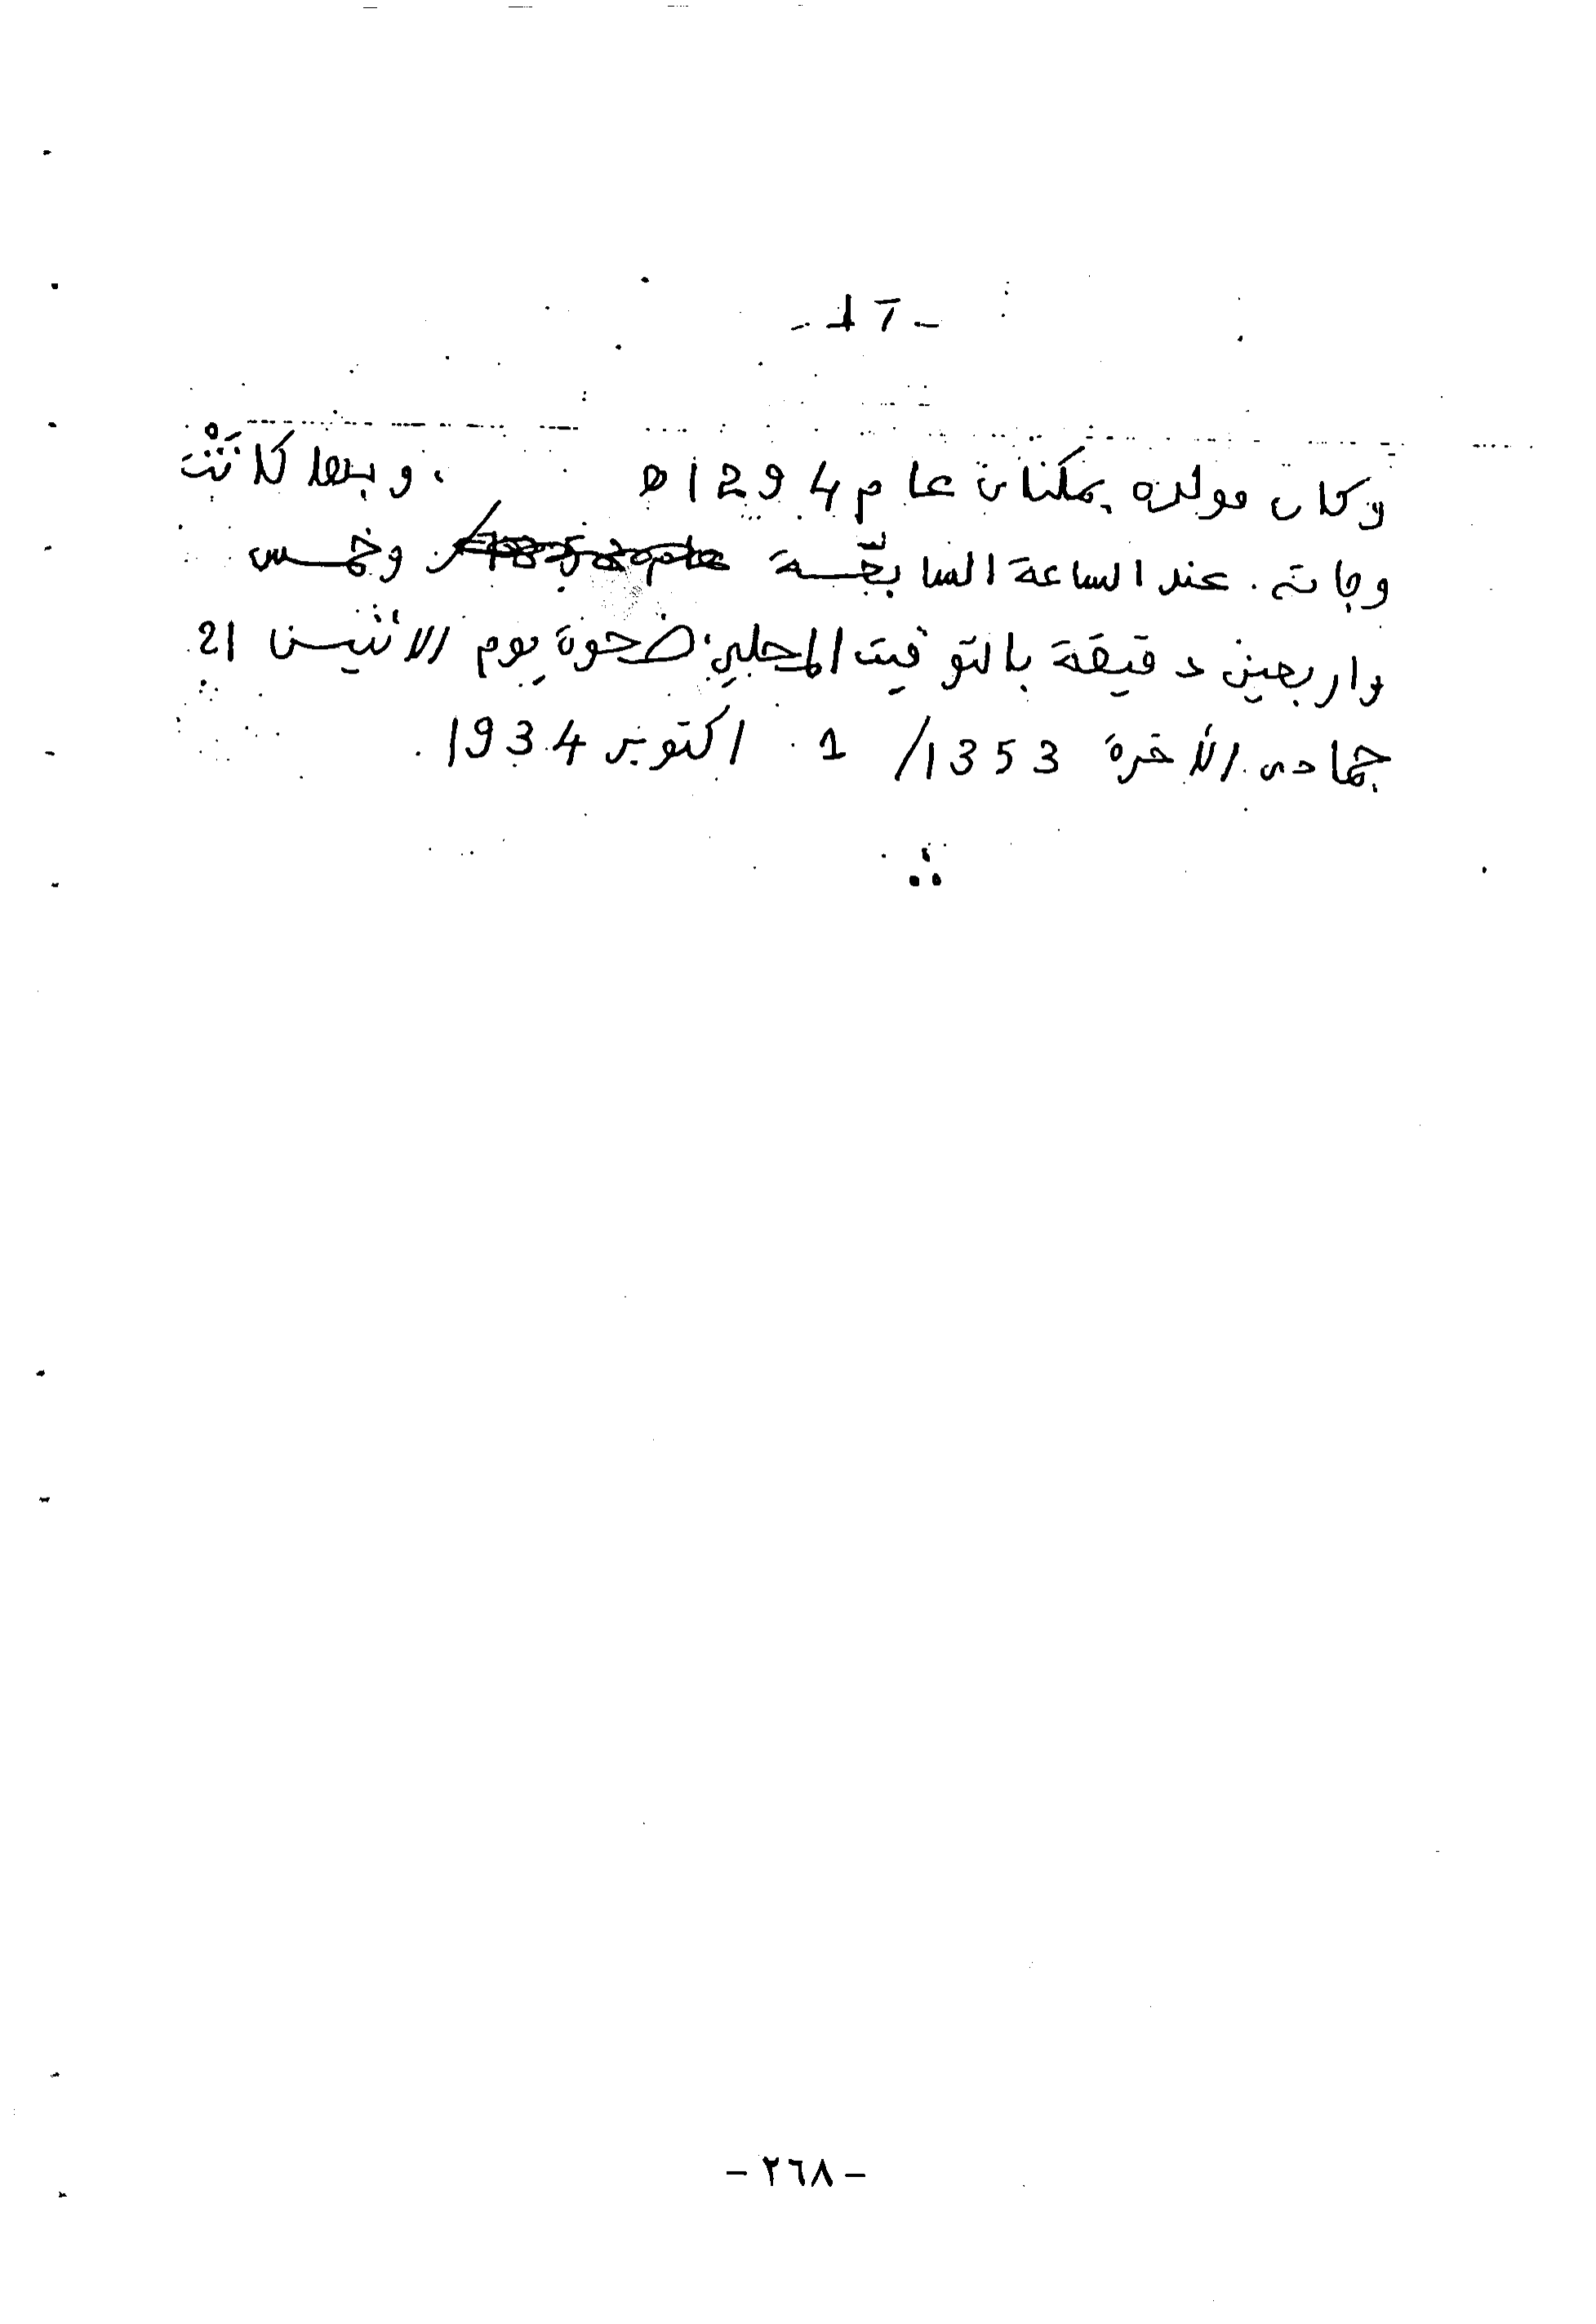 - 17 -
وكان مولده بمكناس عام 1294 ه ، وبها كانَتْ
وفاته. عند الساعة السابعة وخمس
واربعين دقيقة بالتوقيت المحلي: ضحوة يوم الاثنين 21
جمادى الأخرة 1353 / 1 اكتوبر 1934.
- ٢٦٨ -